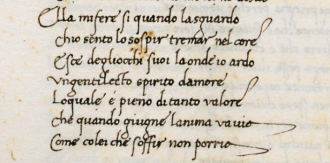 Ella mi fere si quando la sguardo
Chio sento lo sospir tremar nel core
Esce degliocchi suoi la onde io ardo
Vn gentiletto spirito damore
Loquale e pieno di tanto valore
Che quando giugne lanima va uia
Come colei che soffrir non porria